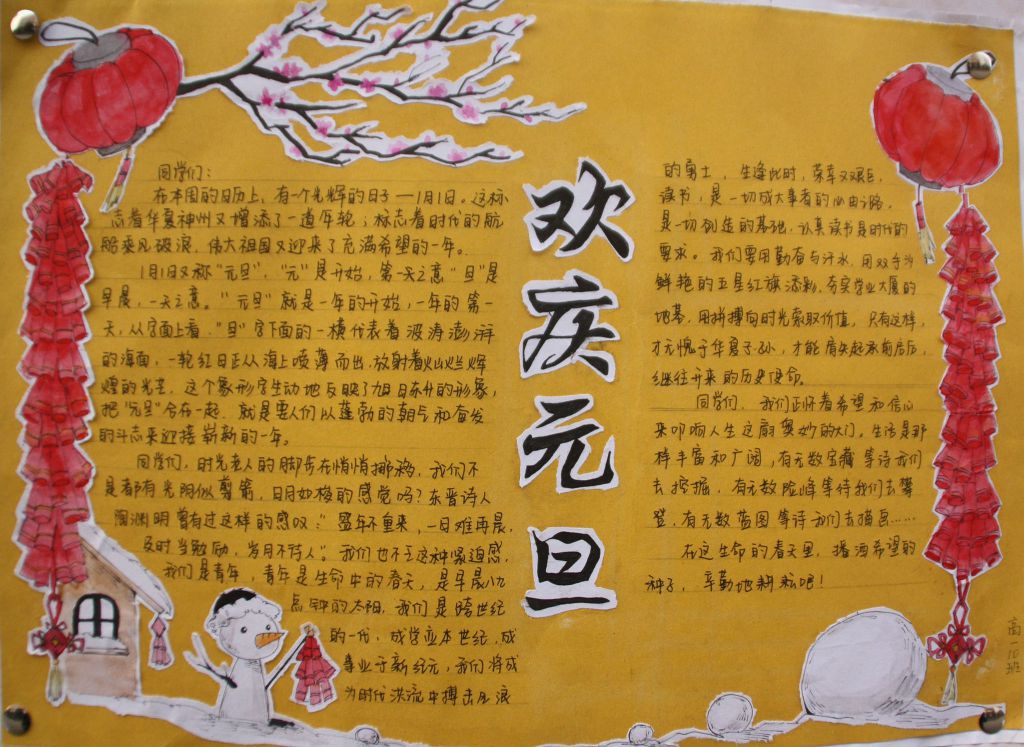 欢庆元旦
同学们:
在本周的日历上,有一个光辉的日子——1月1日。这标
志着华夏神州又增添了一道年轮;标志着时代的航
船乘风破浪,伟大祖国又迎来了充满希望的一年。
1月1日又称"元旦","元"是开始,第一天之意"旦"是
早晨,一天之意。"元旦"就是一年的开始,一年的第一
天,从字面上看,"旦"字下面的一横代表着波涛澎湃
的海面,一轮红日正从海上喷薄而出,放射着灿烂辉
煌的光芒,这个象形字生动地反映了旭日东升的形象,
把"元旦"合在一起,就是要人们以蓬勃的朝气和奋发
的斗志来迎接崭新的一年。
同学们,时光老人的脚步在悄悄挪移,我们不
是都有光阴似箭,日月如梭的感觉吗?东晋诗人
陶渊明曾有过这样的感叹:"盛年不重来,一日难再晨,
及时当勉励,岁月不待人"。我们也不乏这种紧迫感,
我们是青年,青年是生命中的春天,是早晨八九
点钟的太阳,我们是跨世纪
的一代,成学业本世纪,成
事业于新纪元,我们将成
为时代洪流中搏击风浪
的勇士,生逢此时,荣幸又艰巨,
读书,是一切成大事者的必由之路,
是一切创造的基础,认真读书是时代的
要求。我们要用勤奋与汗水,用双手为
鲜艳的五星红旗添彩,夯实学业大厦的
地基,用拼搏向时光索取价值,只有这样,
才无愧于华夏子孙,才能肩负起承前启后,
继往开来的历史使命。
同学们,我们正怀着希望和信心
来叩响人生这扇奥妙的大门,生活是那
样丰富和广阔,有无数宝藏等待我们
去挖掘,有无数险峰等待我们去攀
登,有无数蓝图等待我们去描画……
在这生命的春天里,播洒希望的
种子,辛勤地耕耘吧!
高一10班